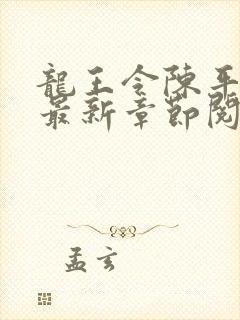 龍王令陳平
最新章節閱
孟玄